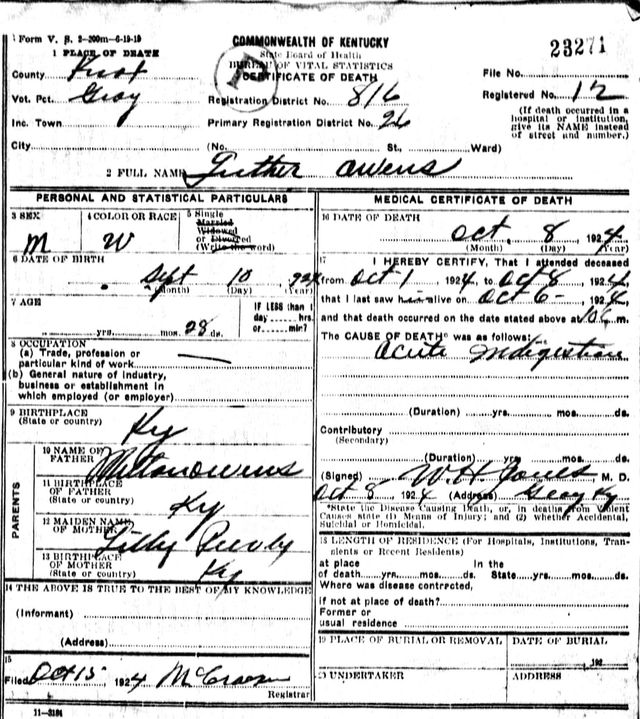 Form V. S. 2-200m-6-19-19
1 PLACE OF DEATH
COMMONWEALTH OF KENTUCKY
State Board of Health
BUREAU OF VITAL STATISTICS
CERTIFICATE OF DEATH
23271
County Knox
File No.
Vot. Pct. Gray
Registration District No. 816
Registered No. 12
Inc. Town
Primary Registration District No. 26
(If death occurred in a hospital or institution, give its NAME instead of street and number.)
City
(No. St., Ward)
2 FULL NAME Luther Owens
PERSONAL AND STATISTICAL PARTICULARS
3 SEX
M
4 COLOR OR RACE
W
5 Single
Married
Widowed
or Divorced
(Write the word)
6 DATE OF BIRTH
Sept 10 1924
(Month) (Day) (Year)
7 AGE
yrs. mos. 28 ds.
IF LESS than 1
day hrs.
or min?
8 OCCUPATION
(a) Trade, profession or
particular kind of work
(b) General nature of industry,
business or establishment in
which employed (or employer)
9 BIRTHPLACE
(State or country)
Ky
PARENTS
10 NAME OF
FATHER
Milton Owens
11 BIRTHPLACE
OF FATHER
(State or country)
Ky
12 MAIDEN NAME
OF MOTHER
Lilly
13 BIRTHPLACE
OF MOTHER
(State or country)
Ky
14 THE ABOVE IS TRUE TO THE BEST OF MY KNOWLEDGE
(Informant)
(Address)
15
Filed Oct 15 1924
Registrar
11-3184
MEDICAL CERTIFICATE OF DEATH
16 DATE OF DEATH
Oct, 8, 1924
(Month) (Day) (Year)
17 I HEREBY CERTIFY, That I attended deceased
from Oct 1 1924, to Oct 8, 1924,
that I last saw him alive on Oct 6 - 1924,
and that death occurred on the date stated above at m.
The CAUSE OF DEATH* was as follows:
Acute Indigestion
(Duration) yrs. mos. ds.
Contributory
(Secondary)
(Duration) yrs. mos. ds.
(Signed) W. H. Jones, M. D.
Oct 8, 1924 (Address) Gray Ky
*State the Disease Causing Death, or, in deaths from Violent
Causes state (1) Means of Injury; and (2) whether Accidental,
Suicidal or Homicidal.
18 LENGTH OF RESIDENCE (For Hospitals, Institutions, Transients or Recent Residents)
at place
of death yrs. mos. ds.
In the
State yrs. mos. ds.
Where was disease contracted,
if not at place of death?
Former or
usual residence
19 PLACE OF BURIAL OR REMOVAL
DATE OF BURIAL
192
20 UNDERTAKER
ADDRESS